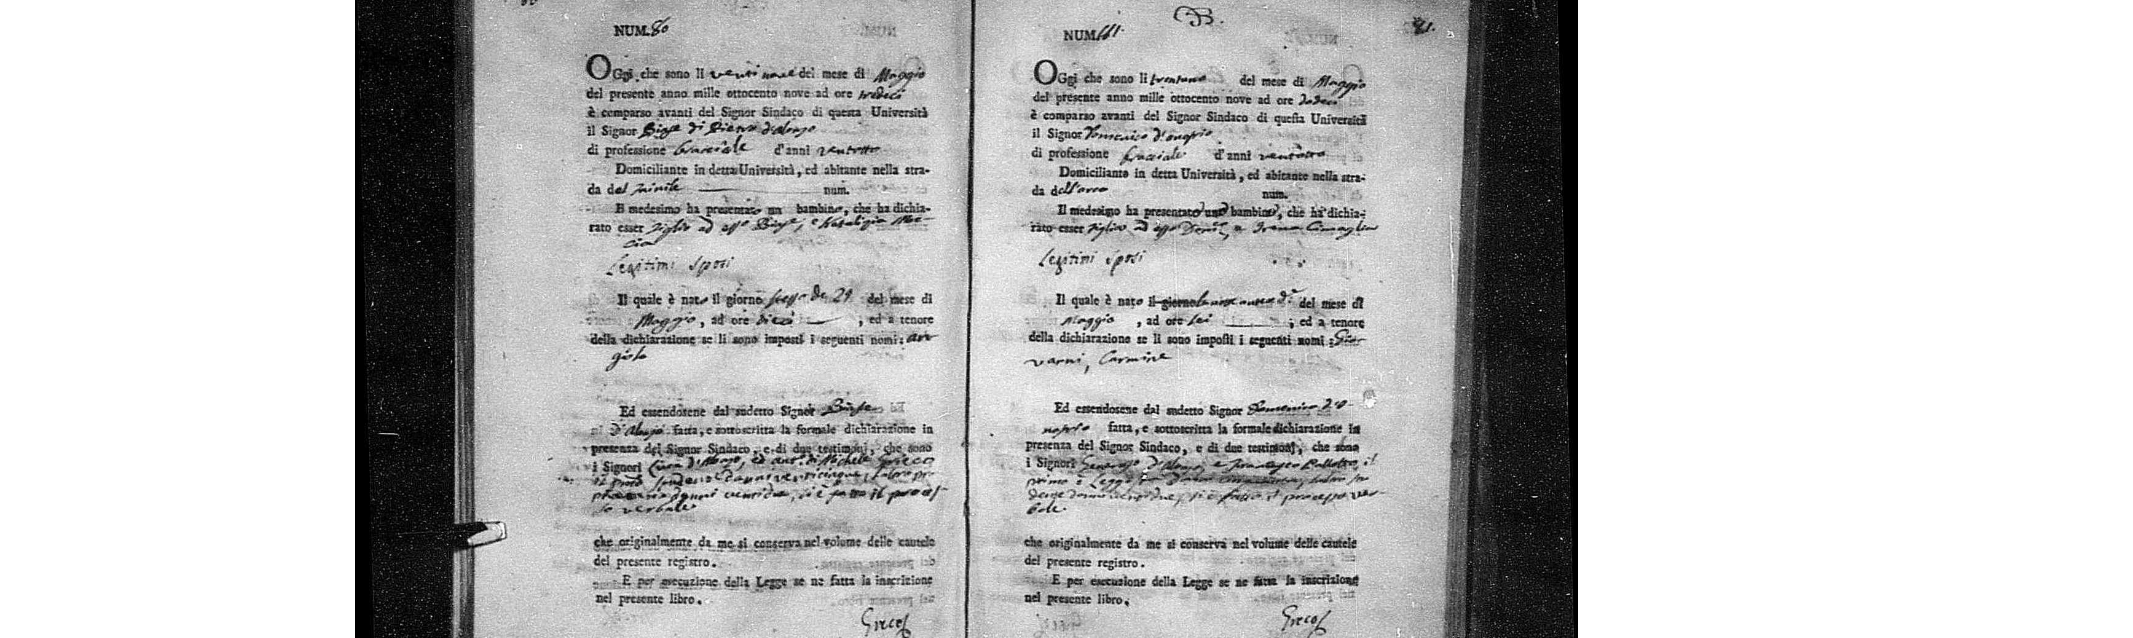 NUM. 80
OGgi che sono li venti nove del mese di Maggio
del presente anno mille ottocento nove ad ore tredeci
è comparso avanti del Signor Sindaco di questa Università
il Signor Biase di
di professione bracciale d'anni ventotto
Domiciliante in detta Università, ed abitante nella stra-
da del num.
Il medesimo ha presentato un bambino, che ha dichia-
rato esser figlio ad esso Biase, e
Legitimi sposi
Il quale è nato il giorno stesso de 29 del mese di
Maggio, ad ore dieci, ed a tenore
della dichiarazione se li sono imposti i seguenti nomi: an
giolo
Ed essendosene dal sudetto Signor Biase
fatta, e sottoscritta la formale dichiarazione in
presenza del Signor Sindaco, e di due testimonj, che sono
i Signori ed Michele Greco
d'anni venticinque, l'altro
d'anni ventidue, si è fatto il proces-
so verbale
che originalmente da me si conserva nel volume delle cautele
del presente registro.
E per esecuzione della Legge se ne fatta la inscrizione
nel presente libro.
Greco
81.
NUM.
OGgi che sono li trentuno del mese di Maggio
del presente anno mille ottocento nove ad ore dodeci
è comparso avanti del Signor Sindaco di questa Università
il Signor Domenico d'onofrio
di professione bracciale d'anni ventotto
Domiciliante in detta Università, ed abitante nella stra-
da dell'arco num.
Il medesimo ha presentato uno bambino, che ha dichia-
rato esser figlio ad esso Domco, e Irena Cimaglia
Legitimi sposi
Il quale è nato il giorno del mese di
Maggio, ad ore sei, ed a tenore
della dichiarazione se li sono imposti i seguenti nomi: Gio-
vanni, Carmine
Ed essendosene dal sudetto Signor Domenico d'o-
nofrio fatta, e sottoscritta la formale dichiarazione in
presenza del Signor Sindaco, e di due testimonj, che sono
i Signori e Francesco il
primo è d'anni l'altro
d'anni ventidue, si è fatto il processo ver-
bale
che originalmente da me si conserva nel volume delle cautele
del presente registro.
E per esecuzione della Legge se ne fatta la inscrizione
nel presente libro.
Greco